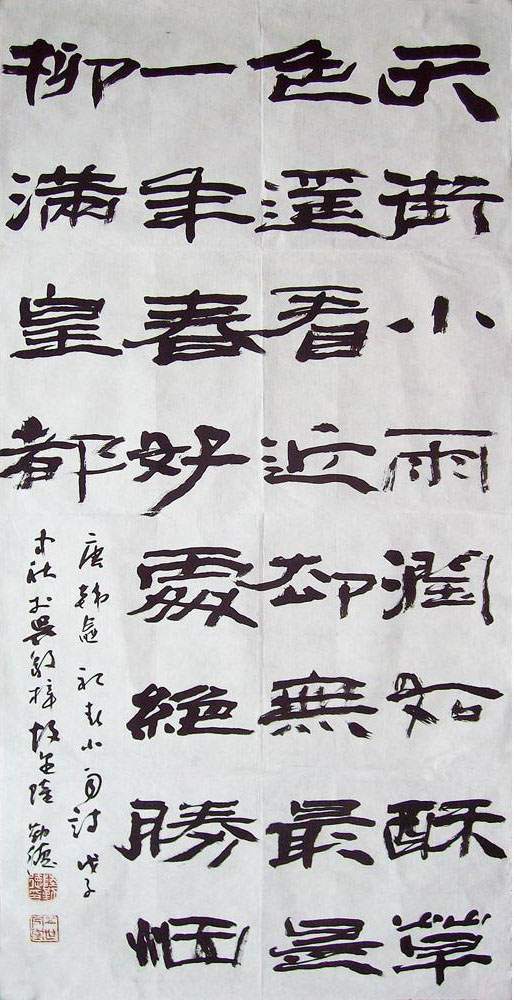 天街小雨潤如酥草
色遥看近却無最是
一年春好處絶勝烟
柳滿皇都
唐韓愈初春小雨詩戊子
中秋於吳敬梓故里陸勤德